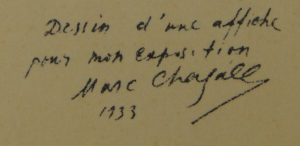 Dessin d'une affiche
pour mon exposition
Marc Chagall
1933